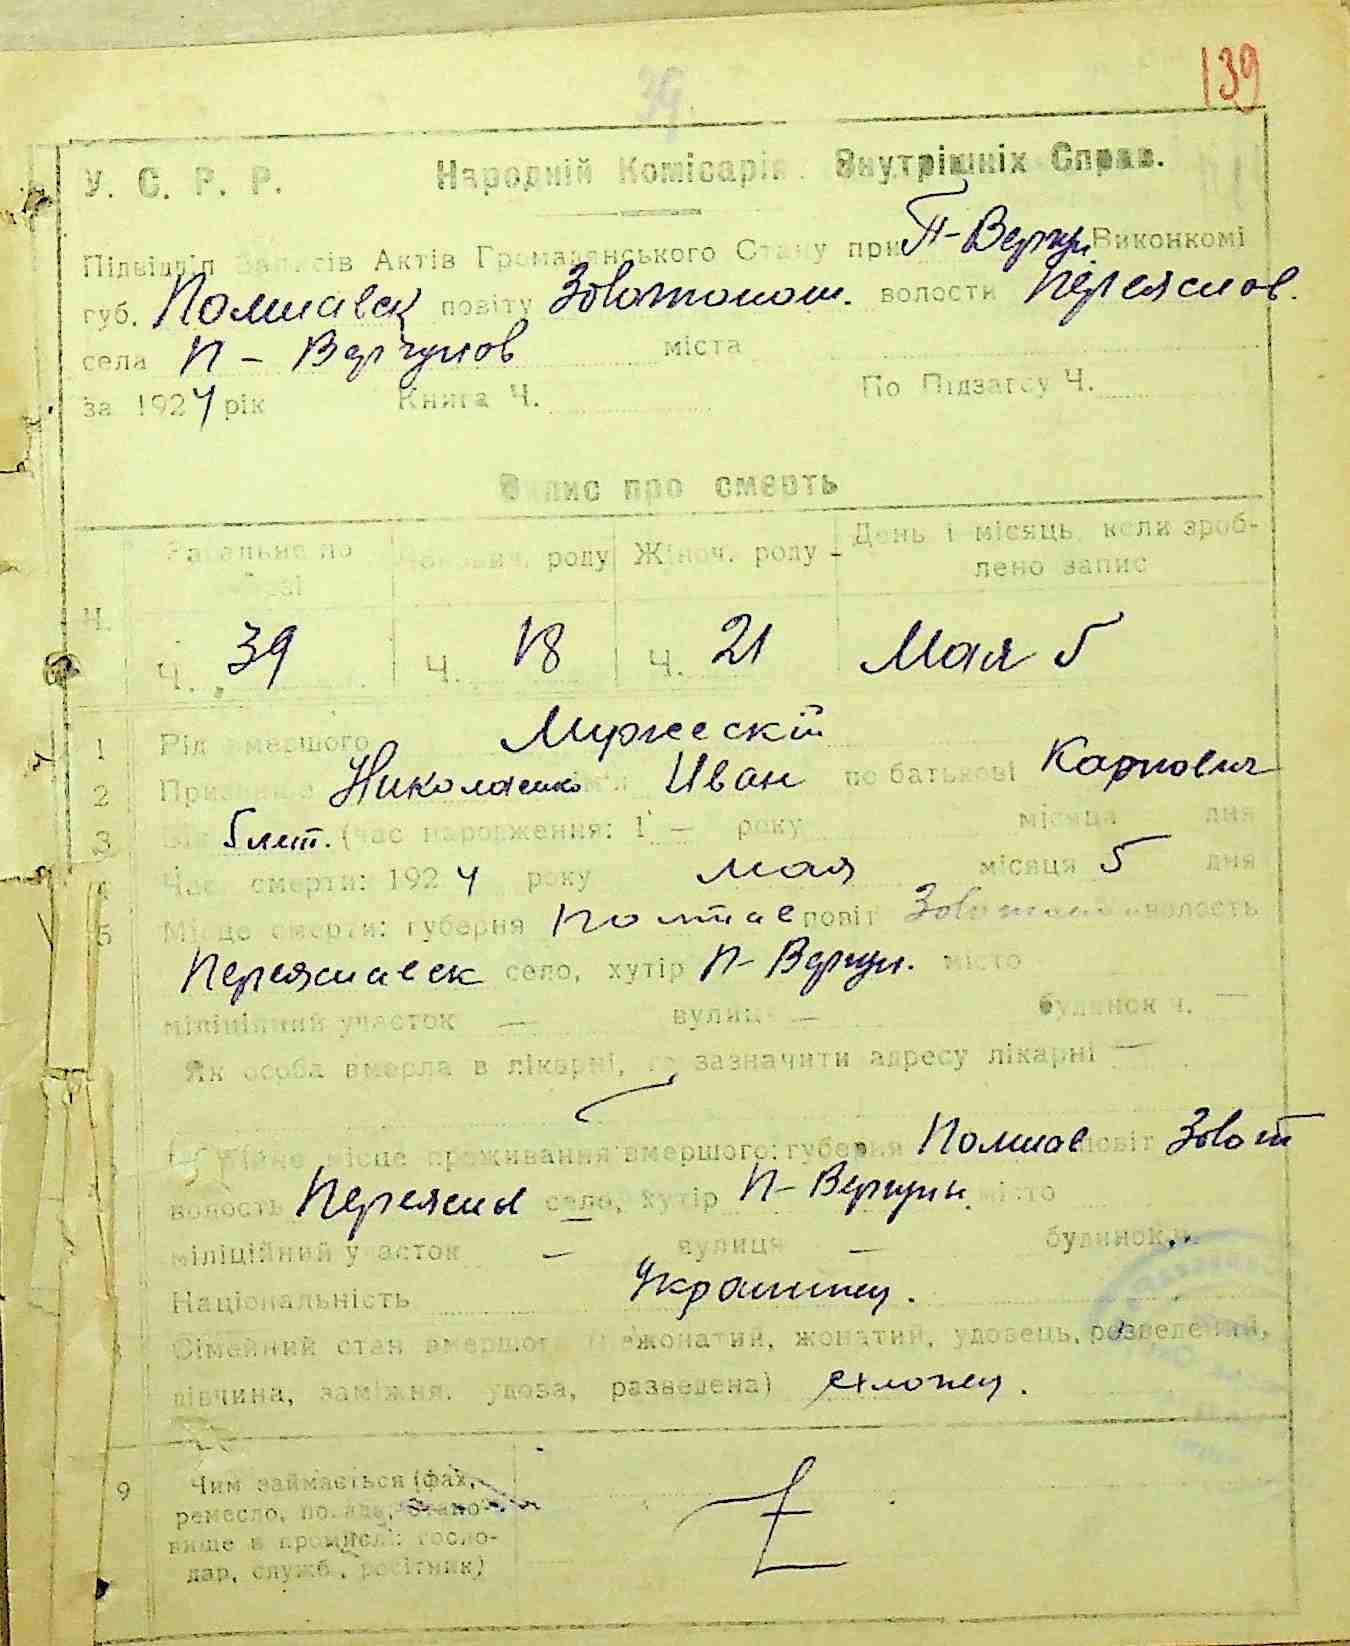 139
39
У. С. Р. Р. Народній Комісарія Внутрішніх Справ.
Підвідділ Записів Актів Громадянського Стану при П-Вергун. Виконкомі
губ. Полтавск повіту Золотонош. волости Переяслов.
села П - Вергунов міста
за 1924 рік Книга Ч. По Підзагсу Ч.
Запис про смерть
Загальне по Чоловіч. роду Жіноч. роду День і місяць, коли зроб-
лено запис
Ч. 39 Ч. 18 Ч. 21 Мая 5
1 Рід вмершого Мужескій
2 Призвище Николаенко Иван по батькові Карпович
3 Вік 5 лет. (час народження: 1 — року місяця дня
4 Час смерти: 1924 року мая місяця 5 дня
5 Місце смерти: губерня Полтав повіт волость
Переяславск село, хутір П-Вергун. місто
міліційний участок — вулиця — будинок ч. —
Як особа вмерла в лікарні, то зазначити адресу лікарні —
місце проживання вмершого: губерня Полтав повіт Золот
волость Переясл село, хутір П-Вергун. місто
міліційний участок — вулиця — будинок ч.
Національність Украинец.
Сімейний стан вмершого (нежонатий, жонатий, удовець, розведений,
дівчина, заміжня, удова, разведена) хлопец.
9 Чим займається (фах,
ремесло, посада, стано-
вище в промислі: госпо-
дар, служб., робітник)